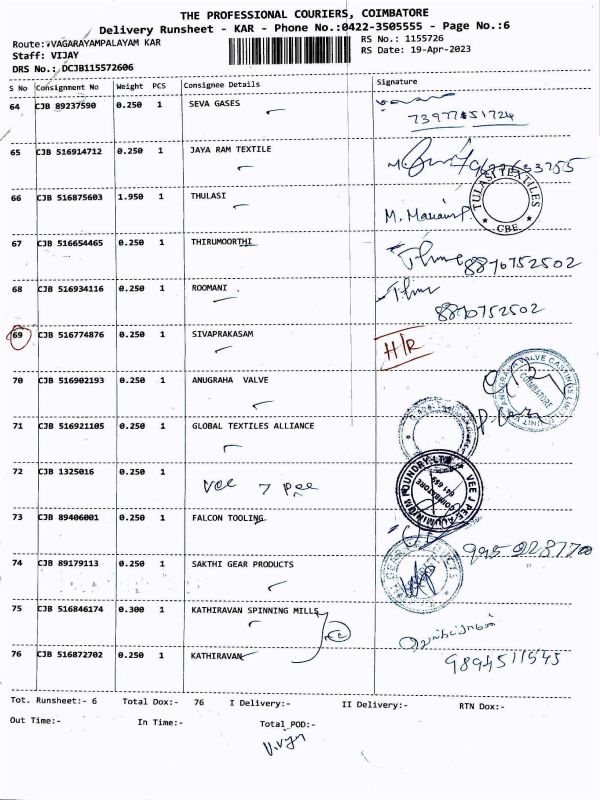 THE PROFESSIONAL COURIERS, COIMBATORE
Delivery Runsheet - KAR - Phone No.:0422-3505555 - Page No.:6
Route:*VAGARAYAMPALAYAM KAR
RS No.: 1155726
Staff: VIJAY
RS Date: 19-Apr-2023
DRS No.: DCJB115572606
S No Consignment No Weight PCS Consignee Details Signature
64 CJB 89237590 0.250 1 SEVA GASES
65 CJB 516914712 0.250 1 JAYA RAM TEXTILE
66 CJB 516875603 1.950 1 THULASI
TULASI TEXTILES
* CBE *
67 CJB 516654465 0.250 1 THIRUMOORTHI
8870752502
68 CJB 516934116 0.250 1 ROOMANI
8870752502
69 CJB 516774876 0.250 1 SIVAPRAKASAM H/R
70 CJB 516902193 0.250 1 ANUGRAHA VALVE
ANUGRAHA VALVE CASTINGS
COIMBATORE
71 CJB 516921105 0.250 1 GLOBAL TEXTILES ALLIANCE
72 CJB 1325016 0.250 1 Vee J Pee
VEE J PEE ALUMINIUM FOUNDRY
COIMBATORE
641 659
73 CJB 89406001 0.250 1 FALCON TOOLING
74 CJB 89179113 0.250 1 SAKTHI GEAR PRODUCTS
75 CJB 516846174 0.300 1 KATHIRAVAN SPINNING MILLS
76 CJB 516872702 0.250 1 KATHIRAVAN
9894511545
Tot. Runsheet:- 6 Total Dox:- 76 I Delivery:- II Delivery:- RTN Dox:-
Out Time:- In Time:- Total POD:-
V.Vijay